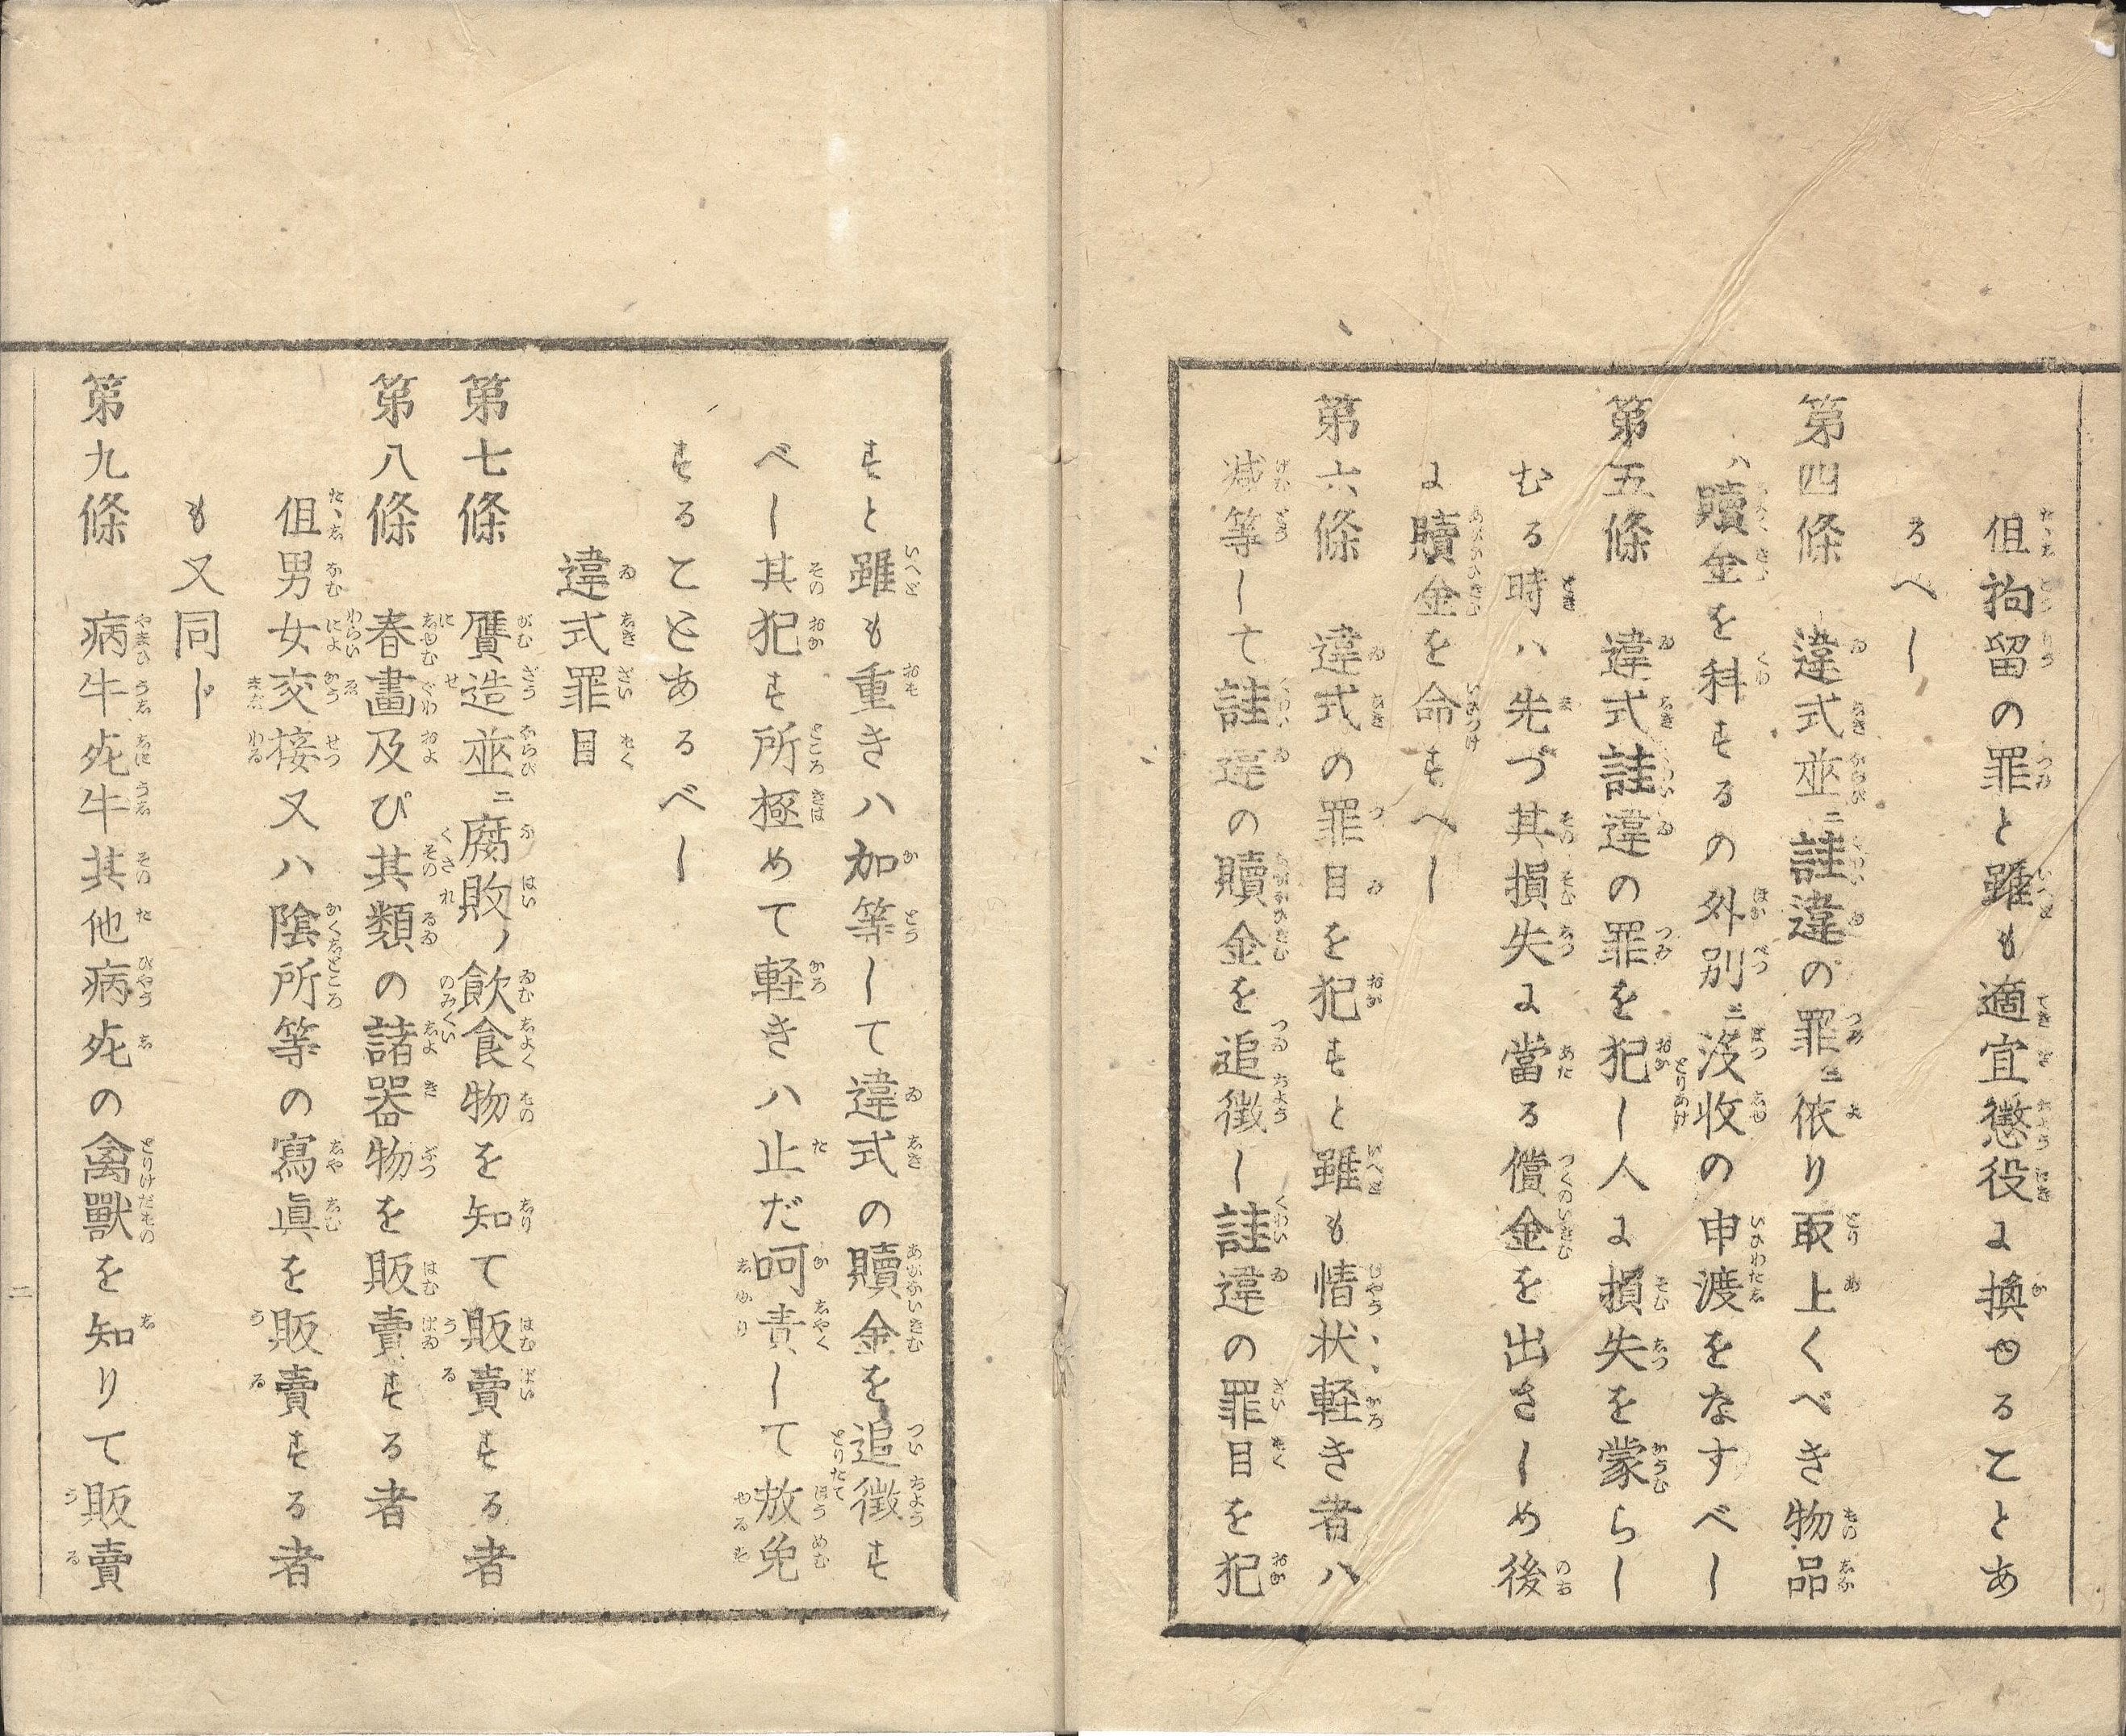 但拘留の罪と雖も適宜懲役に換ゆることあ
るべし
第四條　違式並ニ詿違の罪ニ依り取上くべき物品
ハ贖金を科するの外別ニ没收の申渡をなすべし
第五條　違式詿違の罪を犯し人に損失を蒙らし
むる時ハ先づ其損失に當る償金を出さしめ後
に贖金を命すへし
第六條　違式の罪目を犯すと雖も情状軽き者ハ
減等して詿違の贖金を追徴し詿違の罪目を犯
すと雖も重きハ加等して違式の贖金を追徴す
べし其犯す所極めて軽きハ止だ呵責して放免
することあるべし
違式罪目
第七條　贋造並ニ腐敗ノ飲食物を知て販賣する者
第八條　春畫及び其類の諸器物を販賣する者
但男女交接又ハ陰所等の寫眞を販賣する者
も又同じ
第九條　病牛死牛其他病死の禽獸を知りて販賣
二